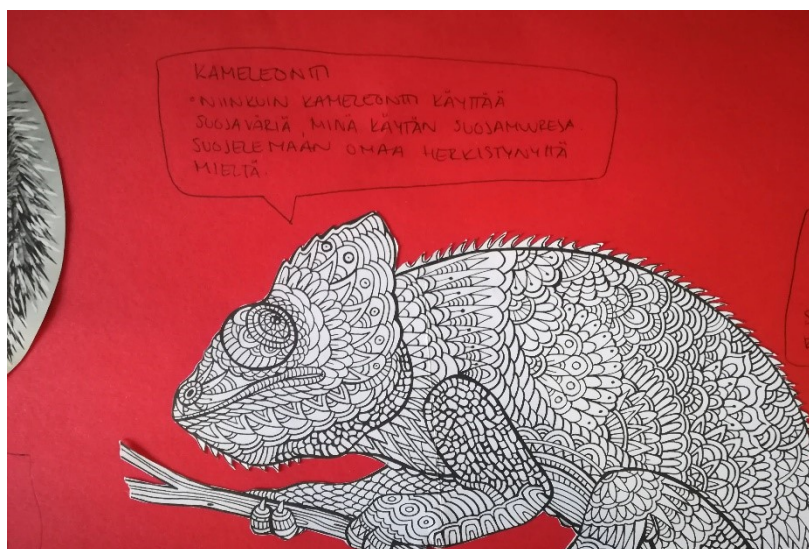 KAMELEONTTI
•NIINKUIN KAMELEONTTI KÄYTTÄÄ
SUOJAVÄRIÄ, MINÄ KÄYTÄN SUOJAMUUREJA
SUOJELEMAAN OMAA HERKISTYNYTTÄ
MIELTÄ.